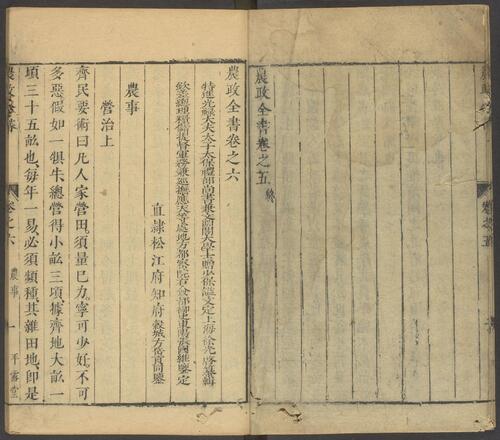 農政全書卷之五 終
農政全書卷之六
特進光祿大夫太子太保禮部尚書兼文淵閣大學士贈少保謚文定上海徐光啓纂輯
欽差總理糧儲提督軍務兼巡撫應天等處地方都察院右僉都御史東陽張國維鑒定
直隸松江府知府穀城方岳貢同鑒
農事
營治上
齊民要術曰凡人家營田須量己力寧可少好不可
多惡假如一俱牛總營得小畝三頃據齊地大畝一
頃三十五畝也每年一易必須頻種其雜田地即是
農政全書 卷之六 農事 一 平露堂